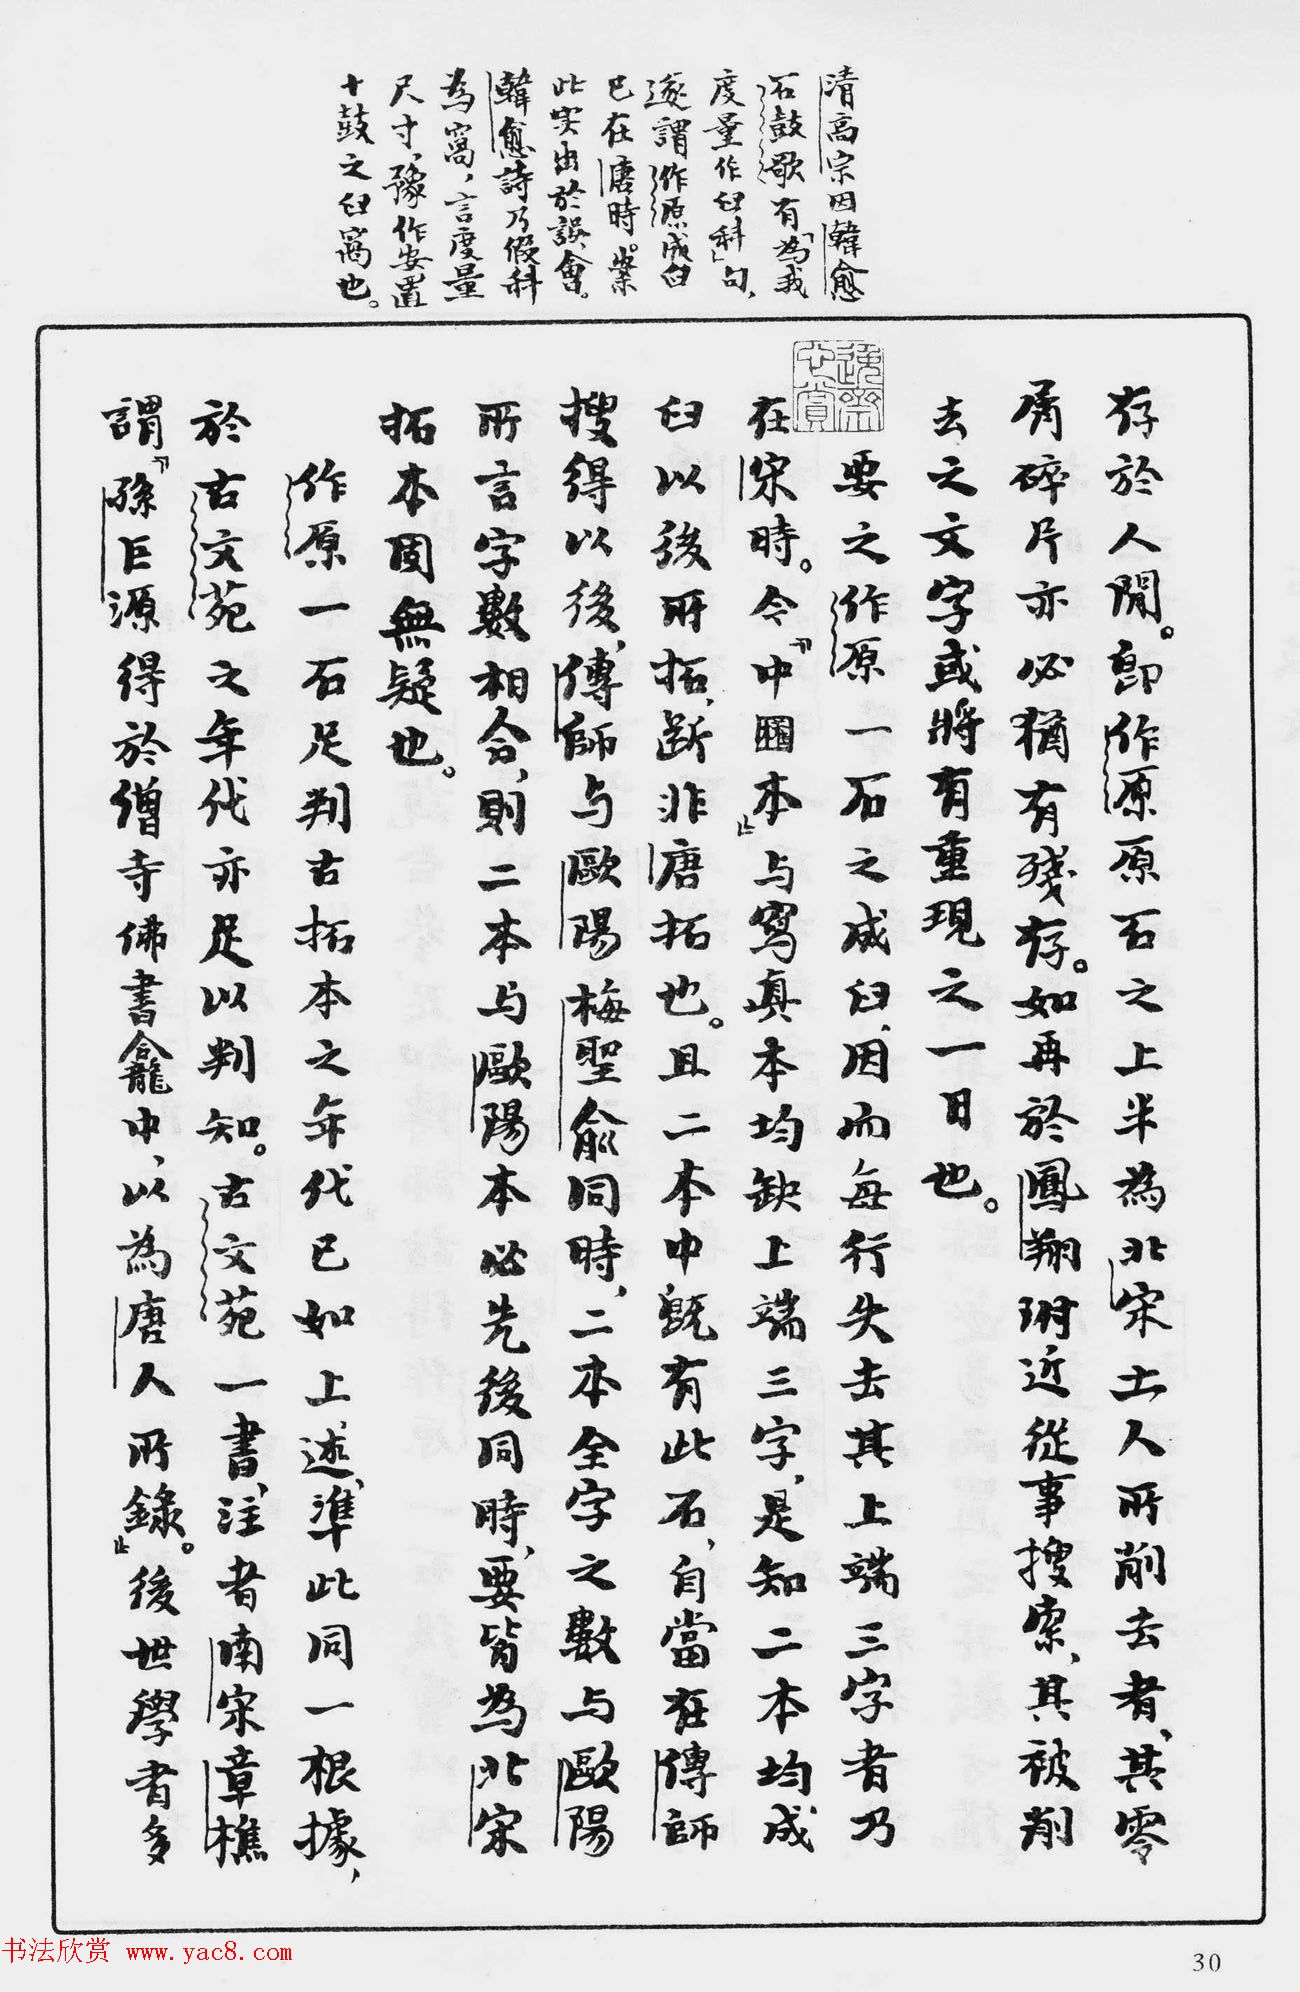 清高宗因韓愈
石鼓歌有「為我
度量作臼科」句、
遂謂作原成臼
已在唐時。案
此实出於誤會。
韓愈詩乃假科
為窩，言度量
尺寸，豫作安置
十鼓之臼窩也。
存於人間。即作原原石之上半為北宋土人所削去者、其零
屑碎片亦必猶有殘存。如再於鳳翔坿近從事搜索、其被削
去之文字或將有重現之一日也。
要之作原一石之成臼、因而每行失去其上端三字者乃
在宋時。今「中國本」与寫真本均缺上端三字、是知二本均成
臼以後所拓、斷非唐拓也。且二本中既有此石、自當在傳師
搜得以後、傳師与歐陽梅聖俞同時、二本全字之數与歐陽
所言字數相合、則二本与歐陽本必先後同時、要皆為北宋
拓本固無疑也。
作原一石足判古拓本之年代已如上述、準此同一根據、
於古文苑之年代亦足以判知。古文苑一書、注者南宋章樵
謂「孫巨源得於僧寺佛書龕中、以為唐人所錄」。後世學者多
30
书法欣赏 www.yac8.com